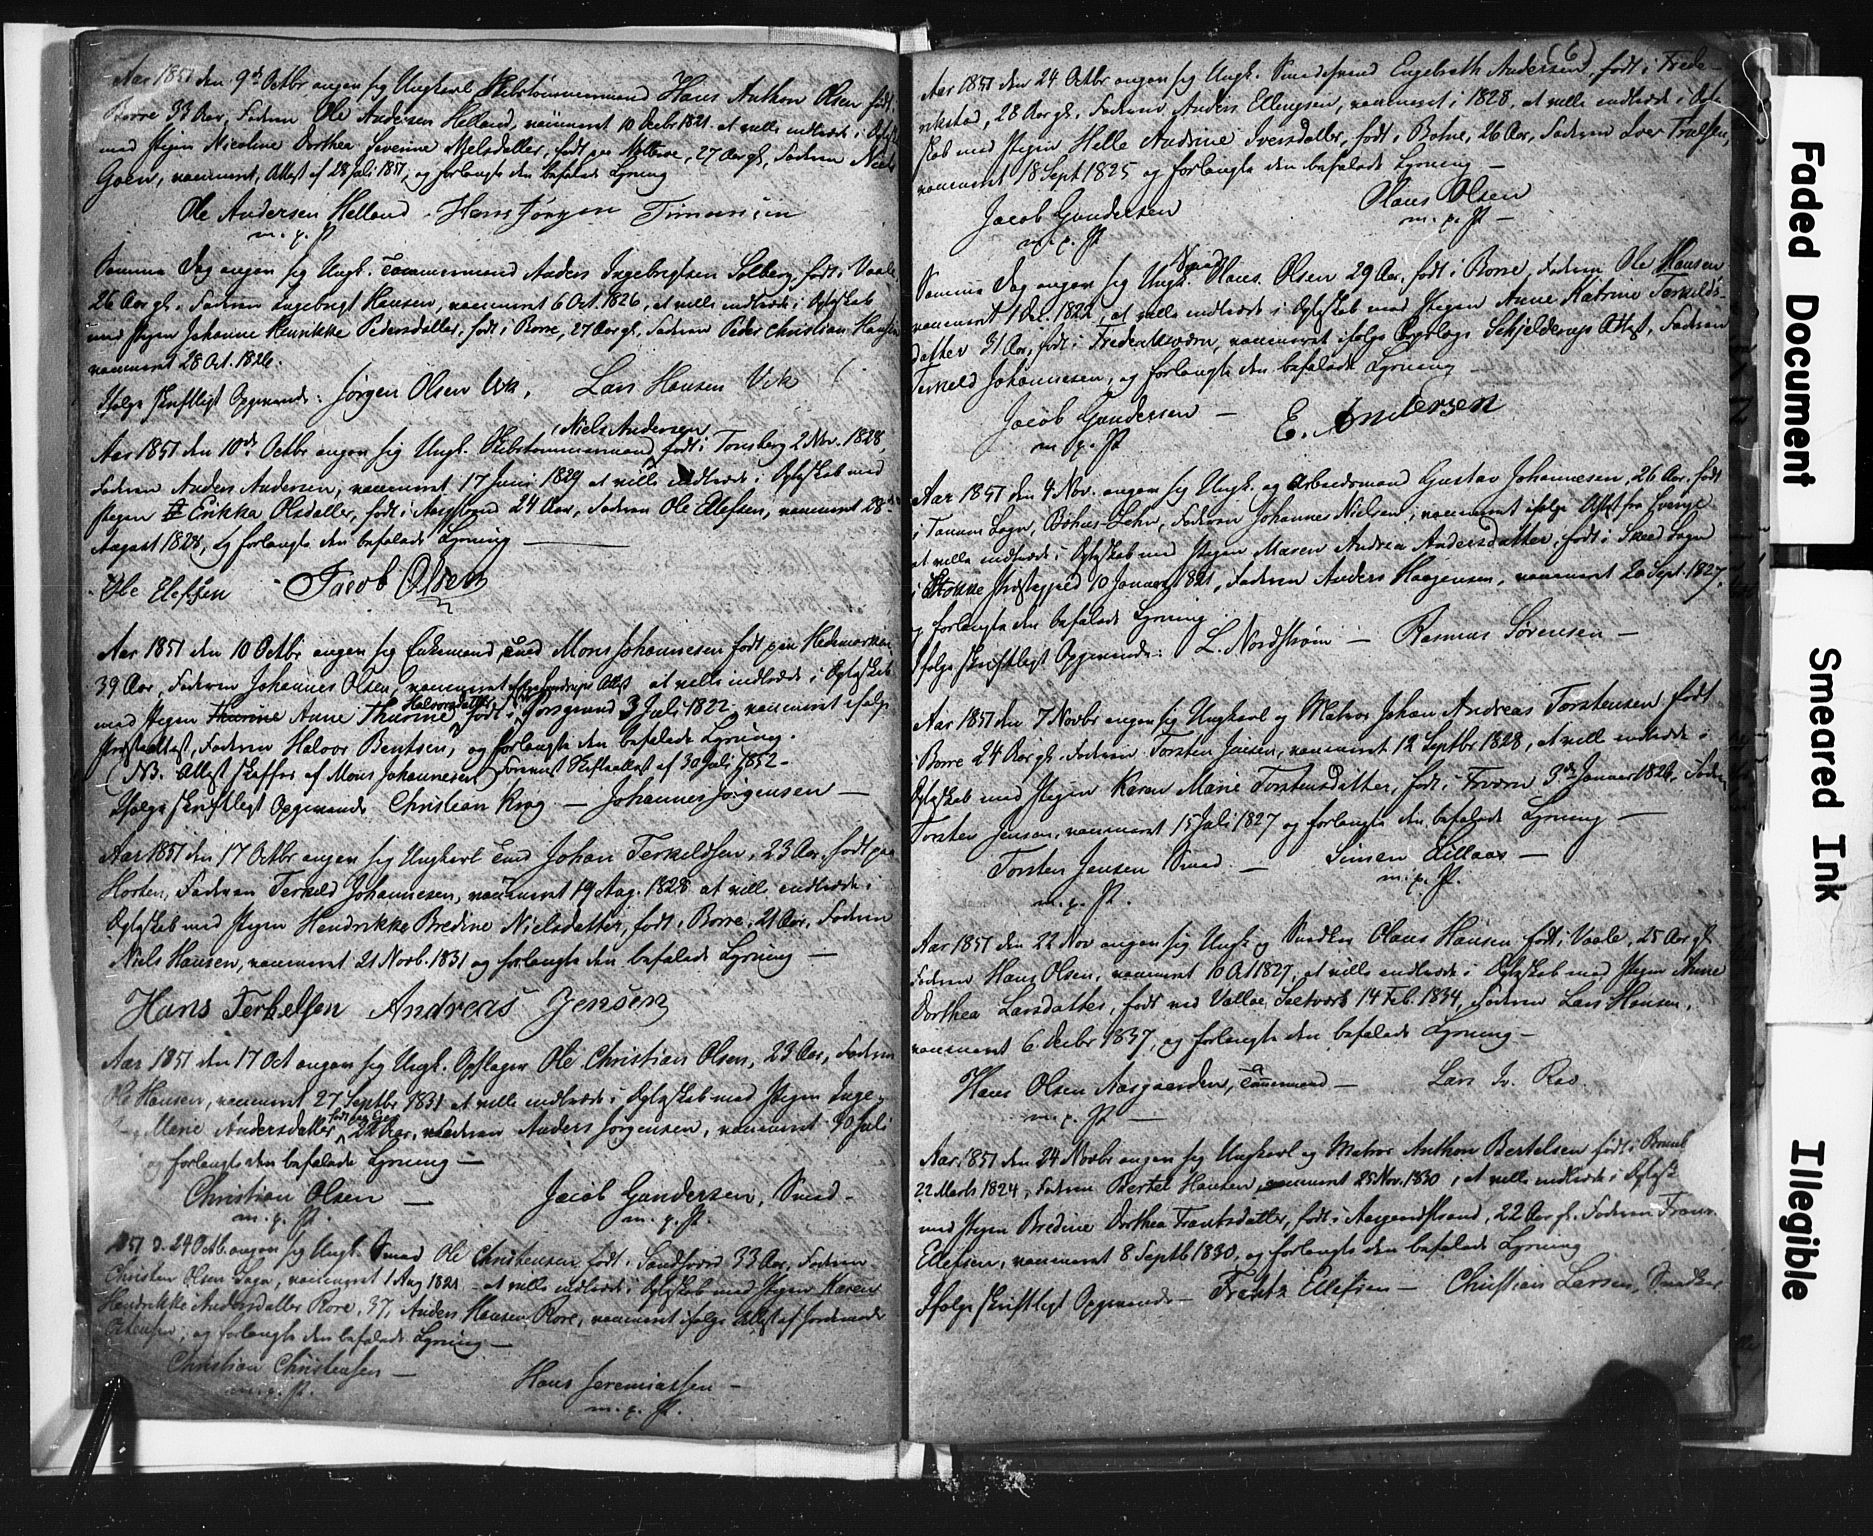 Aar 1851 den 9de Octbr angav sig Ungkarl Skibstømmermand Hans Anthon Olsen født i
Borre 33 Aar, Faderen Ole Andersen Helland, vaccineret 10 Decbr 1821. at ville indtræde i Ægteskab
med Pigen Nicoline Dorthea Severine Nielsdatter, født paa Nøtterøe, 27 Aar gl., Faderen Niels
Goen, vaccineret, Attest af 28 Juli 1851, og forlangte den befalede Lysning
Ole Andersen Helland - Hans Jørgen Simonsen
m. p. P.
Samme Dag angav sig Ungk. Tømmermand Anders Ingebrigtsen Solberg, født i Vaale
26 Aar gl., Faderen Ingebrigt Hansen, vaccineret 6 Oct. 1826, at ville indtræde i Ægteskab
med Pigen Johanne Henrikke Pedersdatter, født i Borre, 27 Aar gl., Faderen Peder Christian Hansen
vaccineret 28 Oct. 1826.
Ifølge skriftligt Opgivende: Jørgen Olsen Vik, Lars Hansen Vik
Niels Andersen
Aar 1851 den 10de Octbr angav sig Ungk. Skibstømmermand født i Tønsberg 2 Nov. 1828,
Faderen Anders Andersen, vaccineret 17 Juni 1829 at ville indtræde i Ægteskab med
Pigen Erikka Olsdatter, født i 24 Aar, Faderen Ole Ellefsen, vaccineret 28de
August 1828, og forlangte den befalede Lysning
Ole Elefsen Jacob Olsen
Aar 1851 den 10 Octbr angav sig Enkemand, Smed Mons Johannesen født paa Hedemarken
39 Aar, Faderen Johannes Olsen, vaccineret Attest at ville indtræde i Ægteskab
Halvorsdatter
med Pigen Thurine Anne Thurine født i Porsgrund 3 Juli 1822 vaccineret ifølge
Præsteattest, Faderen Halvor Bentsen, og forlangte den befalede Lysning.
(NB. Attest skaffes af Mons Johannesen) Forevist Skifteattest af 30 Juli 1852 -
Ifølge skriftligt Opgivende Christian Krog - Johannes Jørgensen -
Aar 1851 den 17 Octbr angav sig Ungkarl Smed Johan Terkeldsen, 23 Aar, født paa
Horten, Faderen Terkeld Johannesen, vaccineret 19 Aug. 1828 at ville indtræde i
Ægteskab med Pigen Hendrikke Bredine Nielsdatter, født i Borre, 21 Aar, Faderen
Niels Hansen, vaccineret 21 Novb. 1831 og forlangte den befalede Lysning -
Hans Terkelsen Andreas Jensen
Aar 1851 den 17 Oct angav sig Ungk. Opslager Ole Christian Olsen, 23 Aar, Faderen
Ole Hansen, vaccineret 27 Septbr 1831 at ville indtræde i Ægteskab med Pigen Inge-
Marie Andersdatter, 22 Aar, Faderen Anders Jørgensen, vaccineret 30 Juli
og forlangte den befalede Lysning -
Christian Olsen - Jacob Gundersen, Smed -
m. p. P. m. p. P.
1851 d. 24 Octb. angav sig Ungk. Smed Ole Christensen født i Sandefjord 33 Aar, Faderen
Christen Olsen, vaccineret 1 Aug 1821 - at ville indtræde i Ægteskab med Pigen Karen
Hendrikke Andersdatter Rore, 37, Anders Hansen Rore, vaccineret ifølge Attest af Jordemoder
og forlangte den befalede Lysning -
Christian Christensen - Hans Jeremiassen -
m. p. P. m. p. P.
(6)
Aar 1851 den 24 Octbr angav sig Ungk. Smedesvend Engebreth Andersen, født i Frede-
rikstad, 28 Aar gl., Faderen Anders Ellingsen, vaccineret i 1828, at ville indtræde i Ægte
skab med Pigen Helle Andrine Iversdatter, født i Botne, 26 Aar, Faderen Iver Truelsen,
vaccineret 18 Sept. 1825 og forlangte den befalede Lysning -
Jacob Gundersen Olaus Olsen
m. p. P. m. p. P. -
Smed
Samme Dag angav sig Ungk. Olaus Olsen 29 Aar, født i Borre, Faderen Ole Hansen
vaccineret 1 Dec. 1822, at ville indtræde i Ægteskab med Pigen Anne Katrine Terkelds-
datter 31 Aar, født i Frederiksværn, vaccineret ifølge Schjelderups Attest, Faderen
Terkeld Johannesen, og forlangte den befalede Lysning -
Jacob Gundersen - E. Andersen
m. p. P.
Aar 1851 den 4 Nov. angav sig Ungk. og Arbeidsmand Gustav Johannesen, 26 Aar, født
i Tanum Sogn, Bohus-Lehn, Faderen Johannes Nielsen, vaccineret ifølge Attest fra Sverige
at ville indtræde i Ægteskab med Pigen Maren Andrea Andersdatter, født i Skeed Sogn
i Stokke Præstegjeld 10 Januar 1821, Faderen Anders Haagensen, vaccineret 20 Sept. 1827,
og forlangte den befalede Lysning
Ifølge skriftligt Opgivende: L. Nordstrøm - Rasmus Sørensen -
Aar 1851 den 7 Novbr angav sig Ungkarl og Matros Johan Andreas Torstensen født
i Borre 24 Aar gl. Faderen Torsten Jensen, vaccineret 12 Septbr 1828, at ville indtræde i
Ægteskab med Pigen Karen Marie Torstensdatter, født i 3de Januar 1826. Faderen
Torsten Jensen, vaccineret 15 Juli 1827 og forlangte den befalede Lysning -
Torsten Jensen Smed - Simen Lillaas -
m. p. P. m. p. P.
Aar 1851 den 22 Nov angav sig Ungk. og Snedker Olaus Hansen født i Vaale, 25 Aar gl.
Faderen Hans Olsen, vaccineret 10 Oct 1827, at ville indtræde i Ægteskab med Pigen Anne
Dorthea Larsdatter, født ved Valløe Saltværk 14 Feb. 1834, Faderen Lars Hansen,
vaccineret 6 Decbr 1837, og forlangte den befalede Lysning -
Hans Olsen Aasgaarden, Tømmermand - Lars
m. p. P. -
Aar 1851 den 24 Novbr angav sig Ungkarl og Matros Anthon Bertelsen født i
22 Marts 1824, Faderen Bertel Hansen, vaccineret 25 Nov. 1830, at ville indtræde i Ægtesk.
med Pigen Bredine Dorthea Frantsdatter, født i Aasgaardstrand, 22 Aar gl. Faderen Frants
Ellefsen, vaccineret 8 Septb 1830, og forlangte den befalede Lysning
Ifølge skriftligt Opgivende - Frantz Ellefsen - Christian Larsen, Snedker
Faded Document
Smeared Ink
Illegible